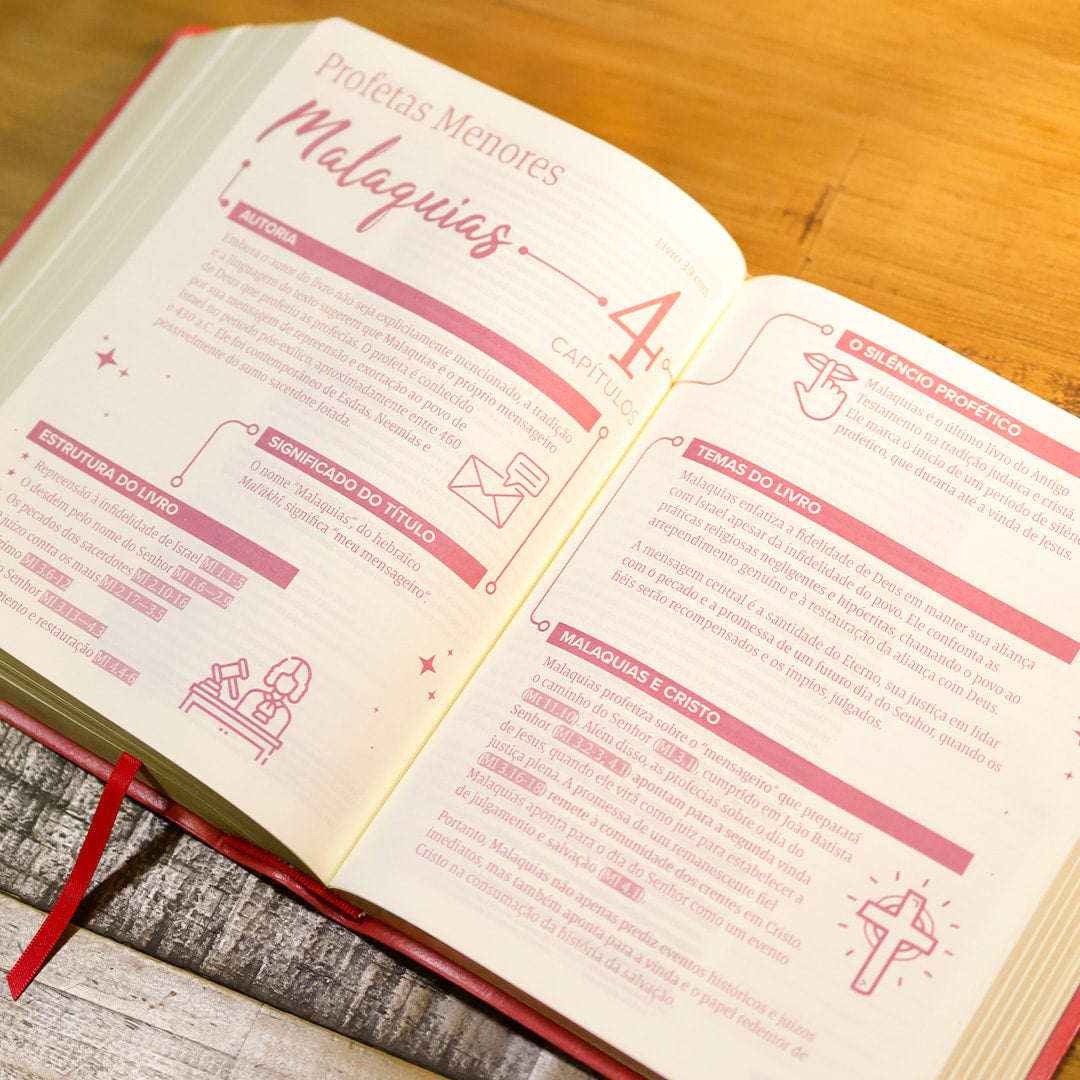 Profetas Menores
Malaquias
Livro 39 com
4
CAPÍTULOS
AUTORIA
Embora o autor do livro não seja explicitamente mencionado, a tradição
e a linguagem do texto sugerem que Malaquias é o próprio mensageiro
de Deus que proferiu as profecias. O profeta é conhecido
por sua mensagem de repreensão e exortação ao povo de
Israel no período pós-exílico, aproximadamente entre 460
e 430 a.C. Ele foi contemporâneo de Esdras, Neemias e
possivelmente do sumo sacerdote Joiada.
ESTRUTURA DO LIVRO
Repreensão à infidelidade de Israel Ml 1.1-5
O desdém pelo nome do Senhor Ml 1.6—2.9
Os pecados dos sacerdotes Ml 2.10-16
juízo contra os maus Ml 2.17—3.5
Ml 3.6-12
o Senhor Ml 3.13—4.3
mento e restauração Ml 4.4-6
SIGNIFICADO DO TÍTULO
O nome “Malaquias”, do hebraico
Mal’ākhî, significa “meu mensageiro”.
O SILÊNCIO PROFÉTICO
Malaquias é o último livro do Antigo
Testamento na tradição judaica e cristã.
Ele marca o início de um período de silên
profético, que duraria até a vinda de Jesus.
TEMAS DO LIVRO
Malaquias enfatiza a fidelidade de Deus em manter sua aliança
com Israel apesar da infidelidade do povo. Ele confronta as
práticas religiosas negligentes e hipócritas, chamando o povo ao
arrependimento genuíno e à restauração da aliança com Deus.
A mensagem central é a santidade do Eterno, sua justiça em lidar
com o pecado e a promessa de um futuro dia do Senhor, quando os
fiéis serão recompensados e os ímpios, julgados.
MALAQUIAS E CRISTO
Malaquias profetiza sobre o “mensageiro” que preparará
o caminho do Senhor (Ml 3.1), cumprido em João Batista
(Mt 11.10). Além disso, as profecias sobre o dia do
Senhor (Ml 3.2-3; 4.1) apontam para a segunda vinda
de Jesus, quando ele virá como juiz para estabelecer a
justiça plena. A promessa de um remanescente fiel
(Ml 3.16-18) remete à comunidade dos crentes em Cristo.
Malaquias aponta para o dia do Senhor como um evento
de julgamento e salvação (Ml 4.1).
Portanto, Malaquias não apenas prediz eventos históricos e juízos
imediatos, mas também aponta para a vinda e o papel redentor de
Cristo na consumação da história da salvação.